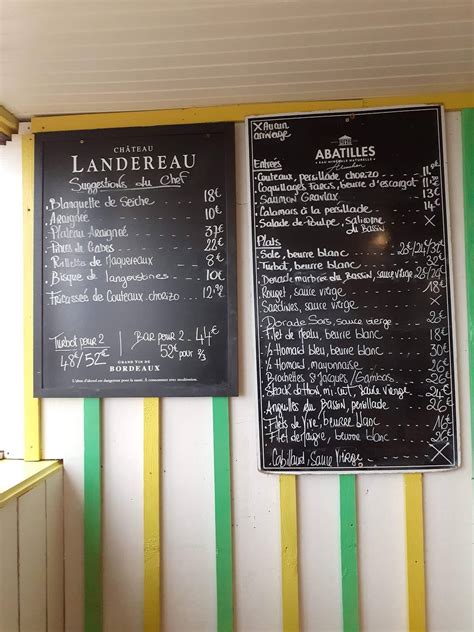 CHÂTEAU
LANDEREAU
Suggestions du Chef
Blanquette de Seiche 18€
Araignée 10€
Plateau Araignée 22€
8€
Rillettes de Maquereaux 8€
Bisque de langoustines 10€
Fricassée de Couteaux, chorizo 12,90
Turbot pour 2
48€/52€
Bar pour 2 44€
52€ pour 2/3
GRAND VIN DE
BORDEAUX
L'abus d'alcool est dangereux pour la santé. À consommer avec modération.
X Aucun
arrivage
ABATILLES
EAU MINÉRALE NATURELLE
Arcachon
Entrées
Couteaux, persillade chorizo 11,90
Coquillages Farcis, beurre d'escargot
Saumon Gravlax
Calamars à la persillade
Salade de Poulpe, Salicorne X
du Bassin
Plats
Sole, beurre blanc
Turbot, beurre blanc 30€
Dorade marbrée du Bassin, sauce vierge
Rouget, sauce vierge X
Sardines, sauce vierge X
Dorade Sars, sauce vierge
Filet de Merlu, beurre blanc 18€
½ Homard bleu, beurre blanc
½ Homard, mayonnaise
Brochettes St Jacques/Gambas
Steack de thon mi cuit, sauce vierge
Anguilles du Bassin, persillade 26€
Filets de Vive, beurre blanc
Filet de maigre, beurre blanc
Cabillaud, Sauce Vierge X